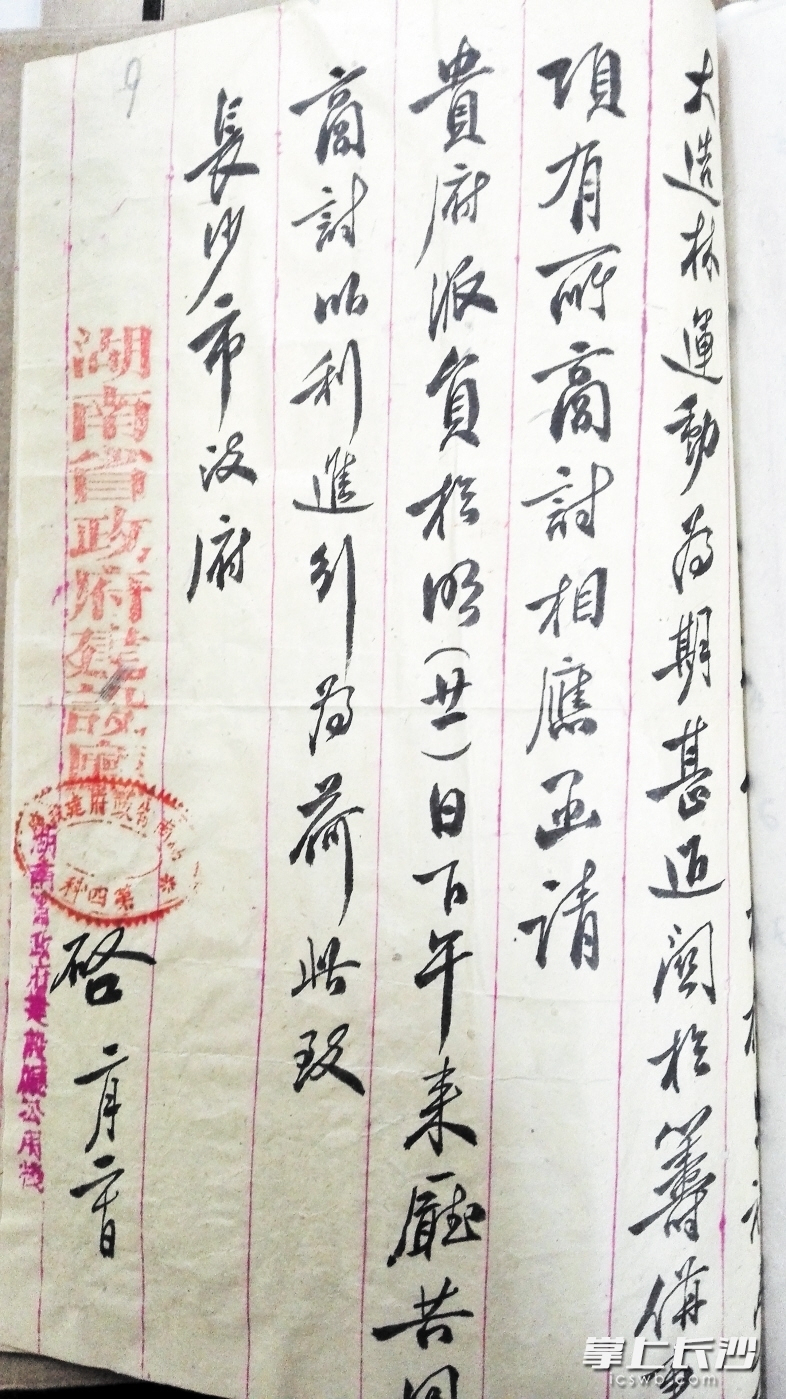 大造林運動為期甚迫關於籌備事
項有所商討相應函請
貴府派員於明(廿一)日下午來廳共同
商討以利進行為荷此致
長沙市政府
湖南省政府建設廳
第四科
啓 二月二十日
湖南省政府建設廳公用箋
9
掌上长沙
icswb.com